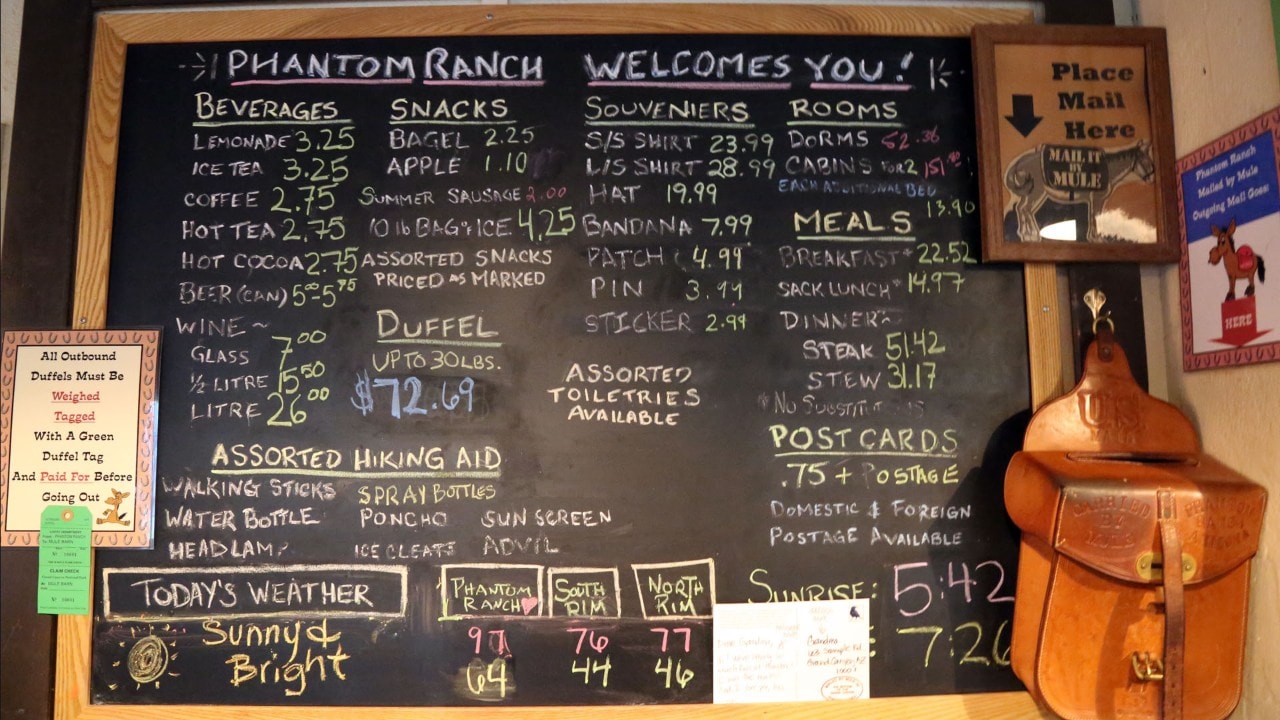 PHANTOM RANCH WELCOMES YOU!
BEVERAGES
LEMONADE 3.25
ICE TEA 3.25
COFFEE 2.75
HOT TEA 2.75
HOT COCOA 2.75
BEER (CAN) 5.00-5.75
WINE~
GLASS 7.00
½ LITRE 15.50
LITRE 26.00
SNACKS
BAGEL 2.25
APPLE 1.10
SUMMER SAUSAGE 2.00
10 lb BAG of ICE 4.25
ASSORTED SNACKS
PRICED AS MARKED
DUFFEL
UP TO 30 LBS.
$72.69
SOUVENIERS
S/S SHIRT 23.99
L/S SHIRT 28.99
HAT 19.99
BANDANA 7.99
PATCH 4.99
PIN 3.99
STICKER 2.99
ASSORTED
TOILETRIES
AVAILABLE
ROOMS
DORMS 52.36
CABINS FOR 2
EACH ADDITIONAL BED
13.90
MEALS
BREAKFAST* 22.52
SACK LUNCH* 14.97
DINNER~
STEAK 51.42
STEW 31.17
*NO
POST CARDS
.75 + POSTAGE
DOMESTIC & FOREIGN
POSTAGE AVAILABLE
ASSORTED HIKING AID
WALKING STICKS SPRAY BOTTLES
WATER BOTTLE PONCHO SUN SCREEN
HEADLAMP ICE CLEATS ADVIL
TODAY'S WEATHER
Sunny &
Bright
PHANTOM
RANCH
97
64
SOUTH
RIM
76
44
NORTH
RIM
77
46
SUNRISE: 5:42
7:26
All Outbound
Duffels Must Be
Weighed
Tagged
With A Green
Duffel Tag
And Paid For Before
Going Out
CLAIM CHECK
Place
Mail
Here
MAIL IT
BY
MULE
Phantom Ranch
Mailed by Mule
Outgoing Mail Goes:
HERE
U.S.
MAIL